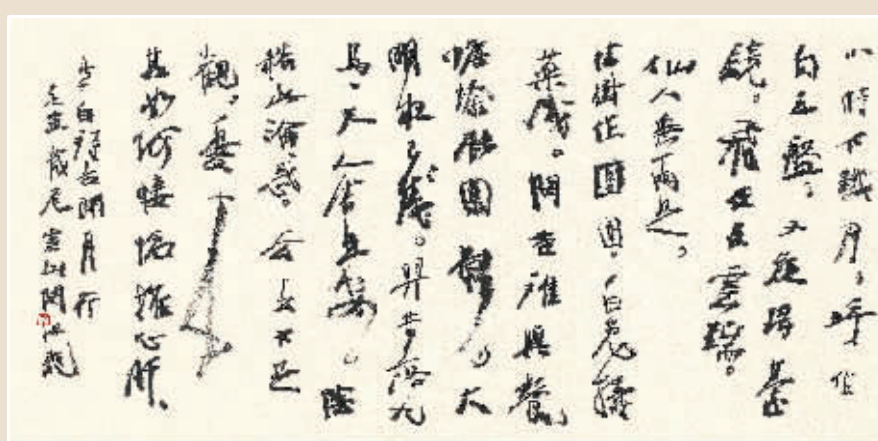 小時不識月，呼作
白玉盤。又疑瑤臺
鏡。飛在青雲端。
仙人垂兩足，
桂樹作團團，白兔搗
藥成。問言誰與餐
蟾蜍蝕圓影。大
明夜已殘。羿昔落九
烏，天人清且安。陰
精此淪惑。去去不足
觀，憂來
其如何悽愴摧心肝、
李白詩古朗月行
歲尾雲山